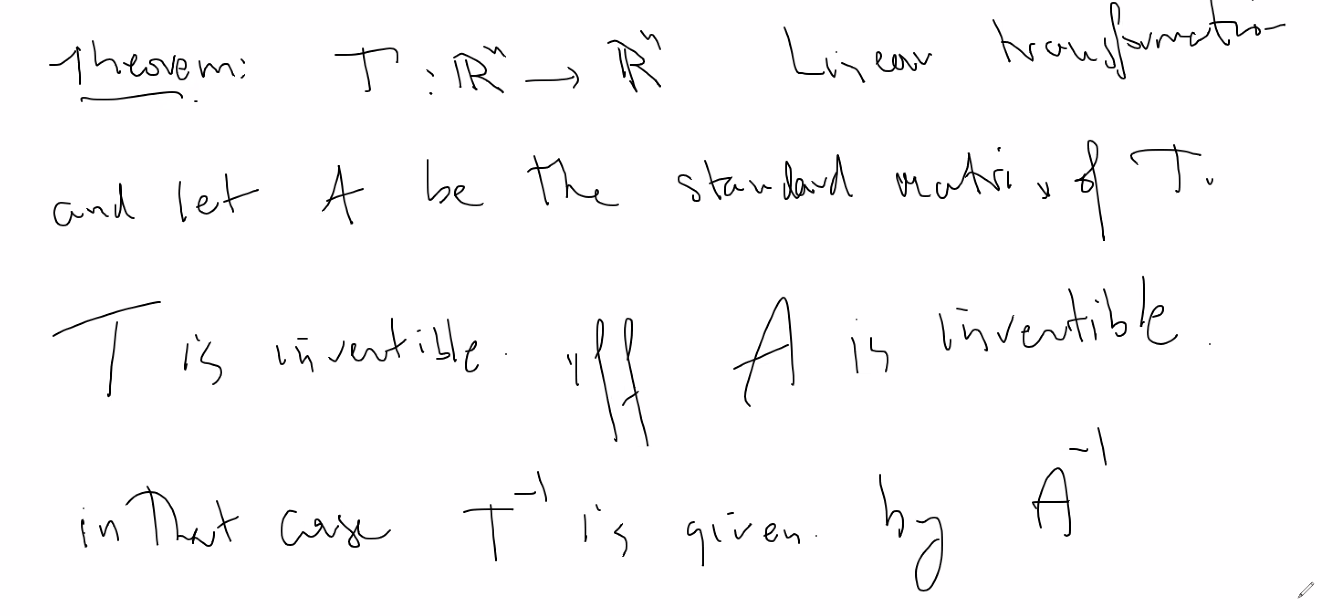 Theorem: T : ℝⁿ → ℝⁿ Linear transformation
and let A be the standard matrix of T.
T is invertible iff A is invertible.
in that case T⁻¹ is given by A⁻¹